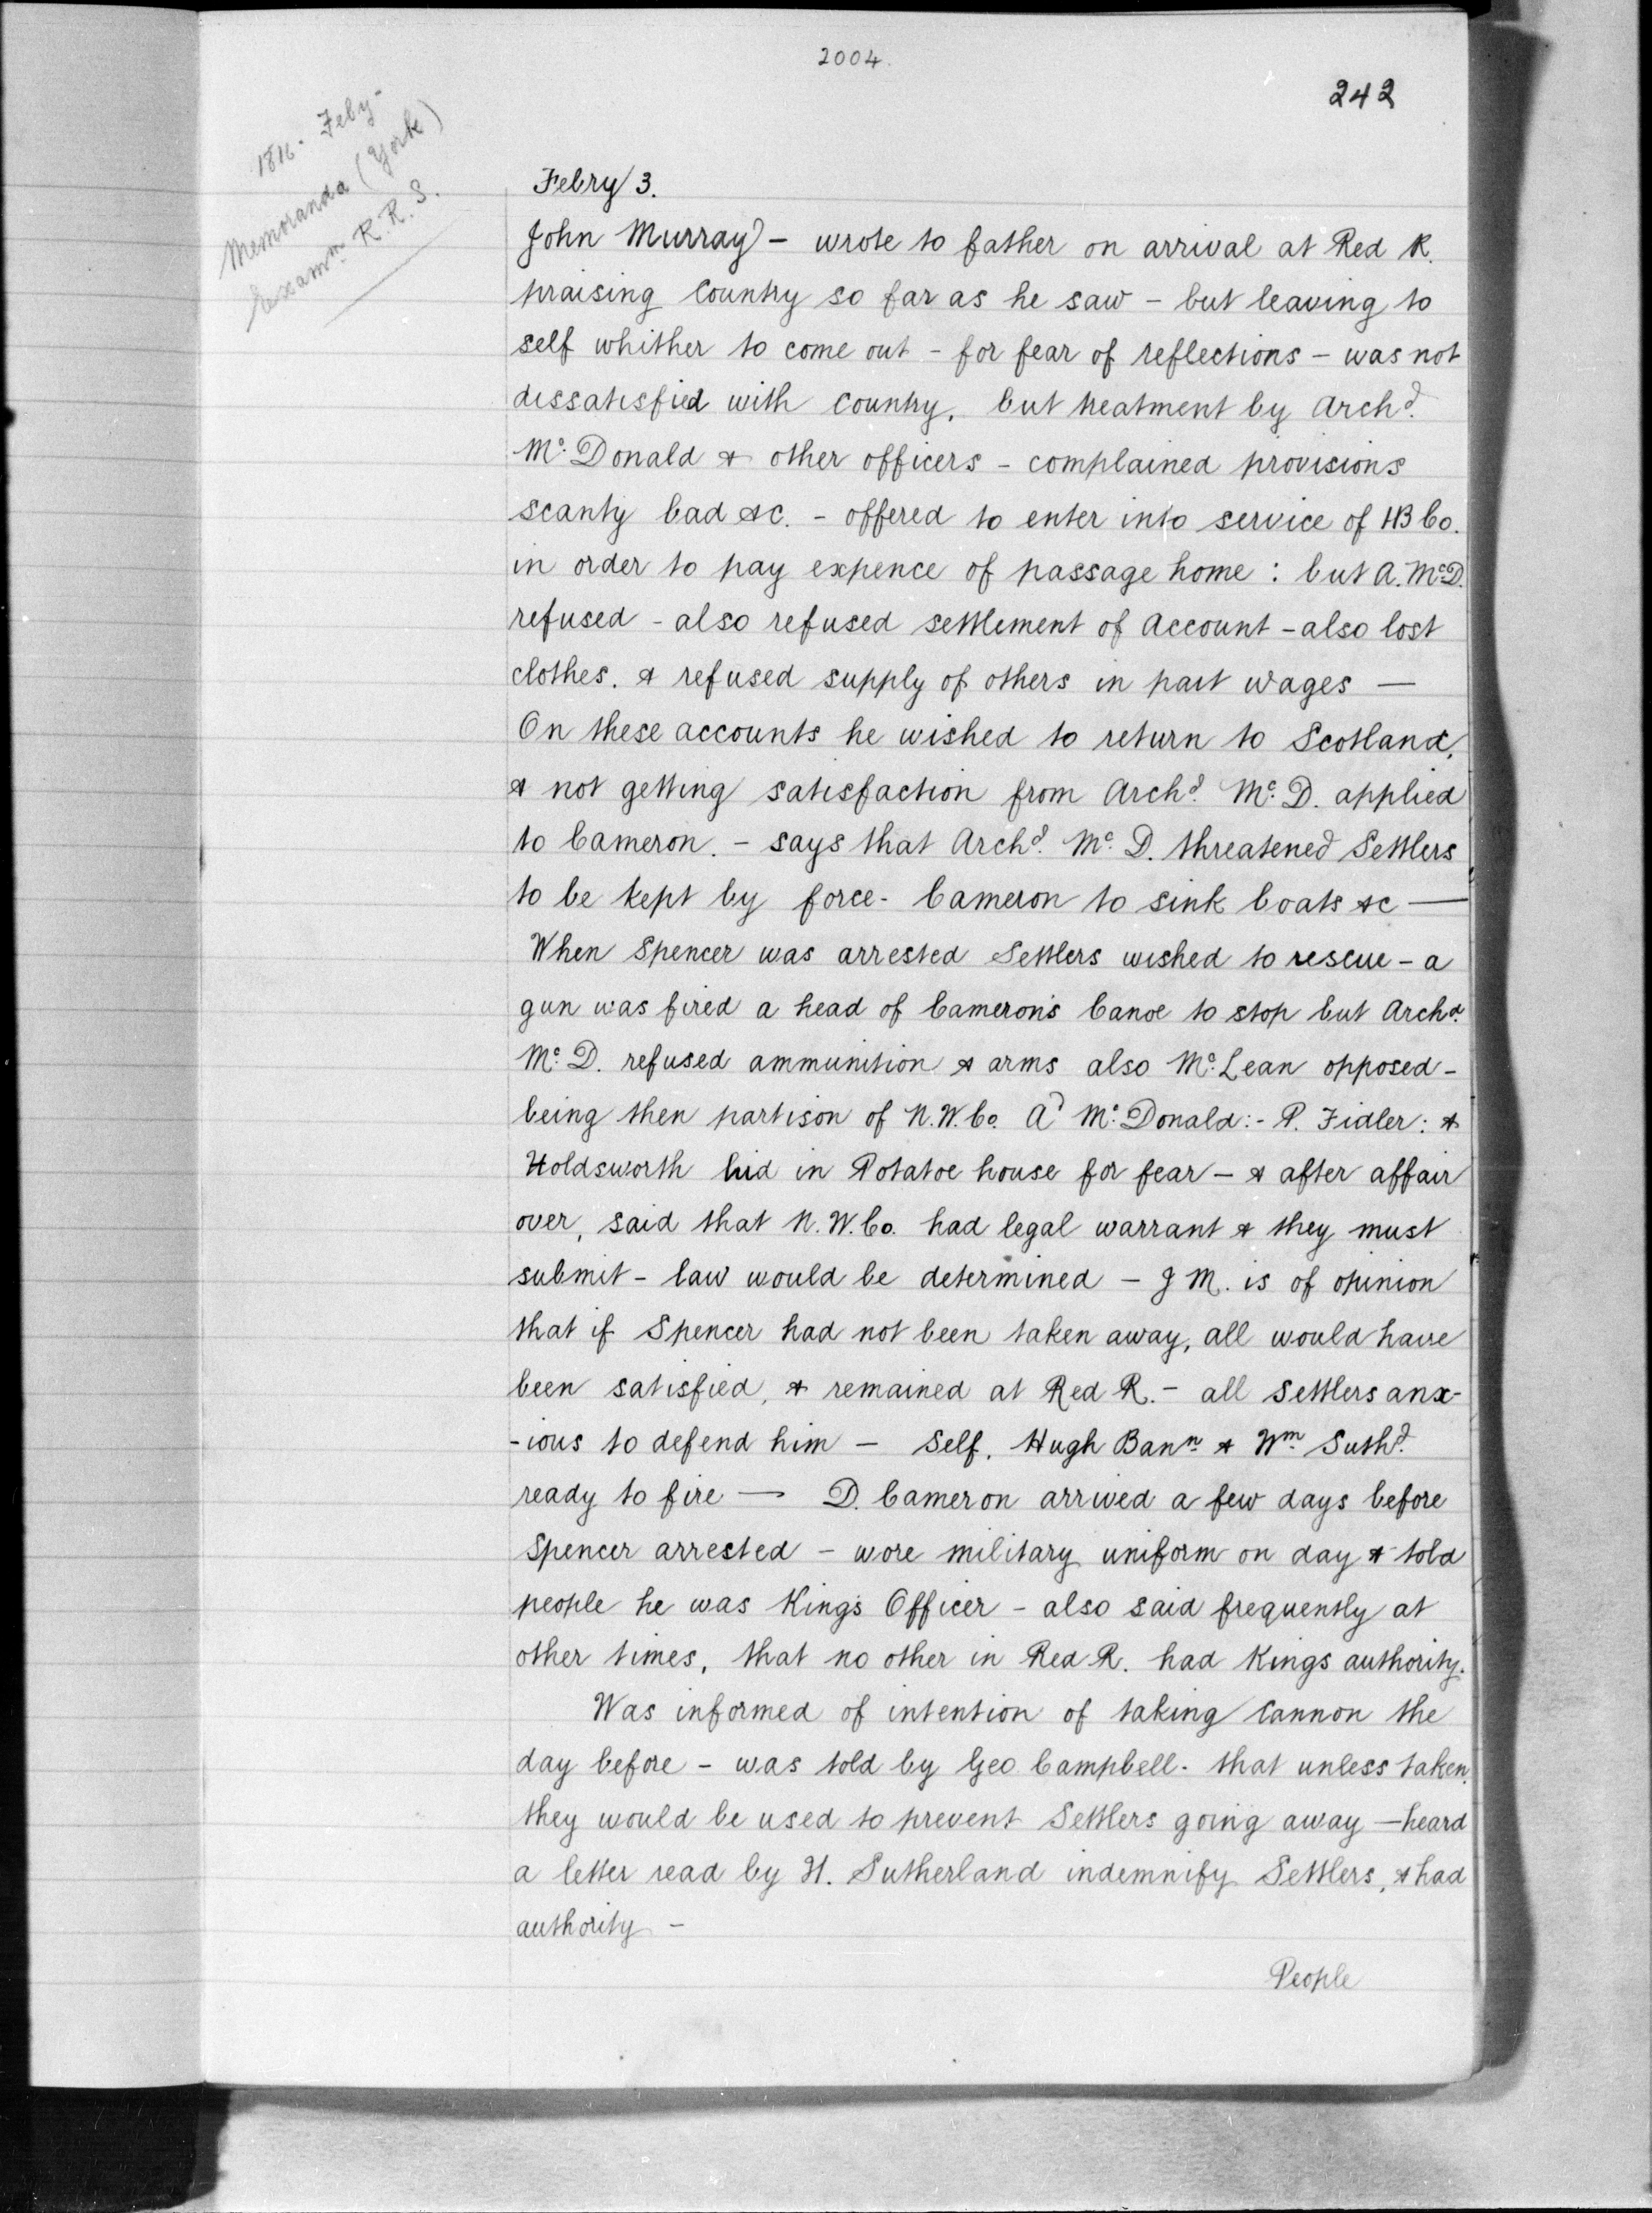 2004.
242
1816. Feby-
Memoranda (Yorke)
Examn. R. R. S.
Febry 3.
John Murray - wrote to father on arrival at Red R.
praising Country so far as he saw - but leaving to
self whither to come out - for fear of reflections - was not
dissatisfied with country, but treatment by Archd.
Mc. Donald & other officers - complained provisions
scanty bad &c. - offered to enter into service of HB Co.
in order to pay expence of passage home : but A. Mc.D.
refused - also refused settlement of Account - also lost
clothes. & refused supply of others in part wages —
On these accounts he wished to return to Scotland,
& not getting satisfaction from Archd. Mc. D. applied
to Cameron. - says that Archd. Mc. D. threatened Settlers
to be kept by force - Cameron to sink boats &c —
When Spencer was arrested Settlers wished to rescue - a
gun was fired a head of Cameron's Canoe to stop but Archd.
Mc. D. refused ammunition & arms also Mc. Lean opposed -
being then partison of N.W. Co. Ad Mc. Donald :- P. Fidler : &
Holdsworth hid in Potatoe house for fear - & after affair
over, said that N.W. Co. had legal warrant & they must
submit - law would be determined - J M. is of opinion
that if Spencer had not been taken away, all would have
been satisfied, & remained at Red R. - all settlers anx-
-ious to defend him - Self, Hugh Bann. & Wm. Suthd.
ready to fire — D. Cameron arrived a few days before
Spencer arrested - wore military uniform on day & told
people he was King's Officer - also said frequently at
other times, that no other in Red R. had Kings authority.
Was informed of intention of taking Cannon the
day before - was told by Geo Campbell - that unless taken
they would be used to prevent Settlers going away - heard
a letter read by H. Sutherland indemnify Settlers, & had
authority -
People